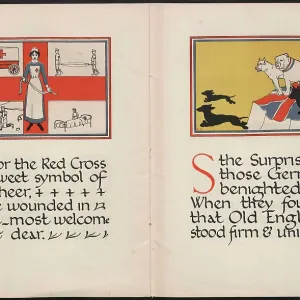 or the Red Cross
weet symbol of
heer, + + + + +
e wounded in
most welcome
dear.
S the Surpris
those Germ
benighted
When they foun
that Old Engl
stood firm & uni